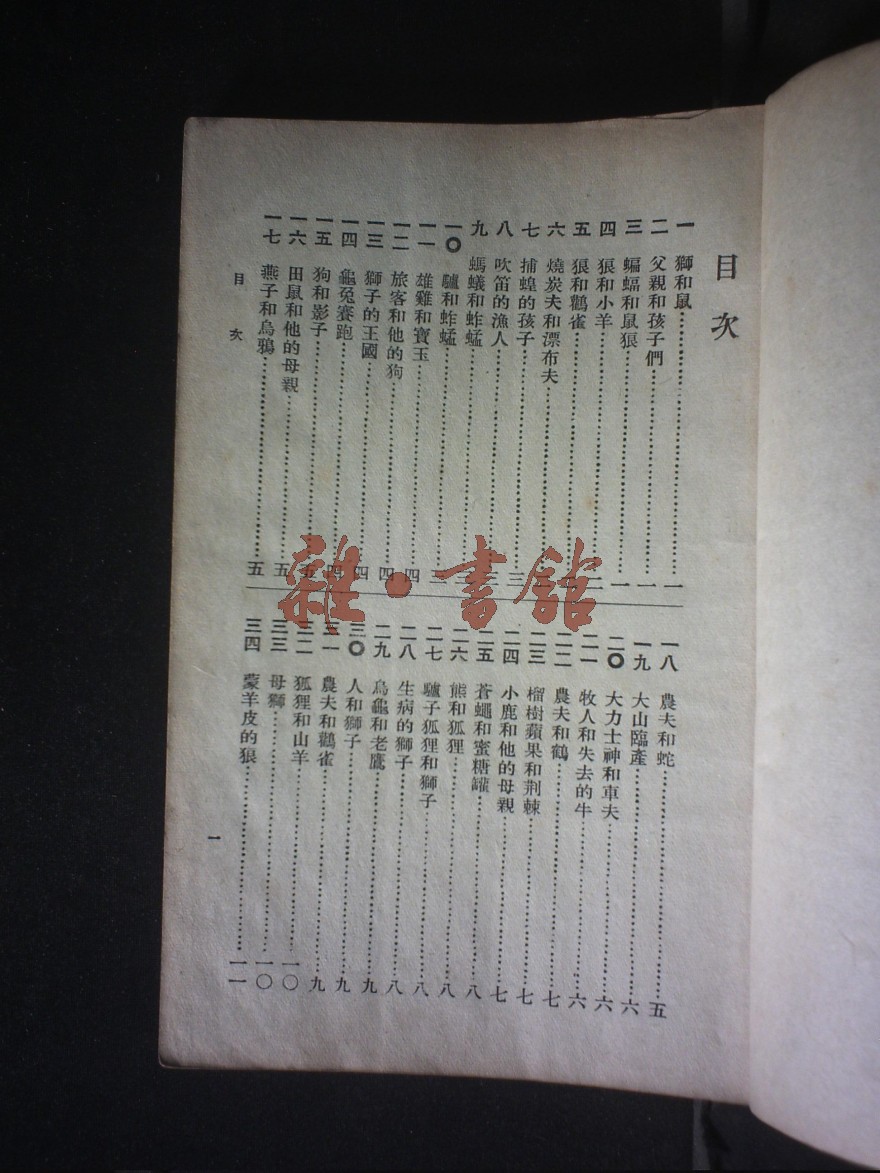 目次
一 獅和鼠……一
二 父親和孩子們……一
三 蝙蝠和鼠狼……一
四 狼和小羊……二
五 狼和鸛雀……
六 燒炭夫和漂布夫……
七 捕蝗的孩子……三
八 吹笛的漁人……
九 螞蟻和蚱蜢……
一〇 驢和蚱蜢……三
一一 雄雞和寶玉……四
一二 旅客和他的狗……四
一三 獅子的王國……四
一四 龜兔賽跑……四
一五 狗和影子……五
一六 田鼠和他的母親……五
一七 燕子和烏鴉……五
一八 農夫和蛇……五
一九 大山臨產……六
二〇 大力士神和車夫……六
二一 牧人和失去的牛……六
二二 農夫和鶴……七
二三 榴樹蘋果和荆棘……七
二四 小鹿和他的母親……七
二五 蒼蠅和蜜糖罐……八
二六 熊和狐狸……八
二七 驢子狐狸和獅子……八
二八 生病的獅子……八
二九 烏龜和老鷹……九
三〇 人和獅子……九
三一 農夫和鸛雀……九
三二 狐狸和山羊……一〇
三三 母獅……一〇
三四 蒙羊皮的狼……一一
目次
一
雜·書館